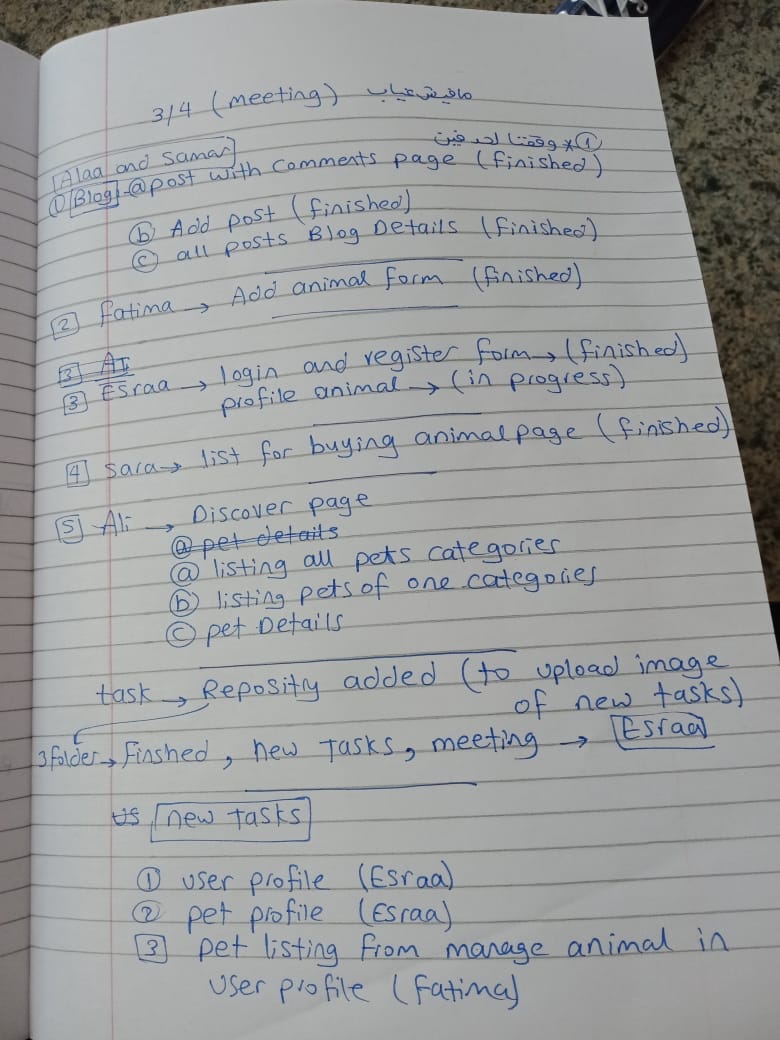 3/4 (meeting) مافيش غياب
① * وقفنا لحد فين
Alaa and Samar
① Blog ⓐ post with comments page (finished)
ⓑ Add post (finished)
ⓒ all posts Blog Details (finished)
2 fatima → Add animal form (finished)
3 AI
3 Esraa → login and register form → (finished)
profile animal → (in progress)
4 sara → list for buying animal page (finished)
5 Ali → Discover page
ⓐ pet details
ⓐ listing all pets categories
ⓑ listing pets of one categories
ⓒ pet Details
task → Reposity added (to upload image
of new tasks)
3 folder → Finshed, new Tasks, meeting → Esraa
new tasks
① user profile (Esraa)
② pet profile (Esraa)
3 pet listing from manage animal in
user profile (fatima)